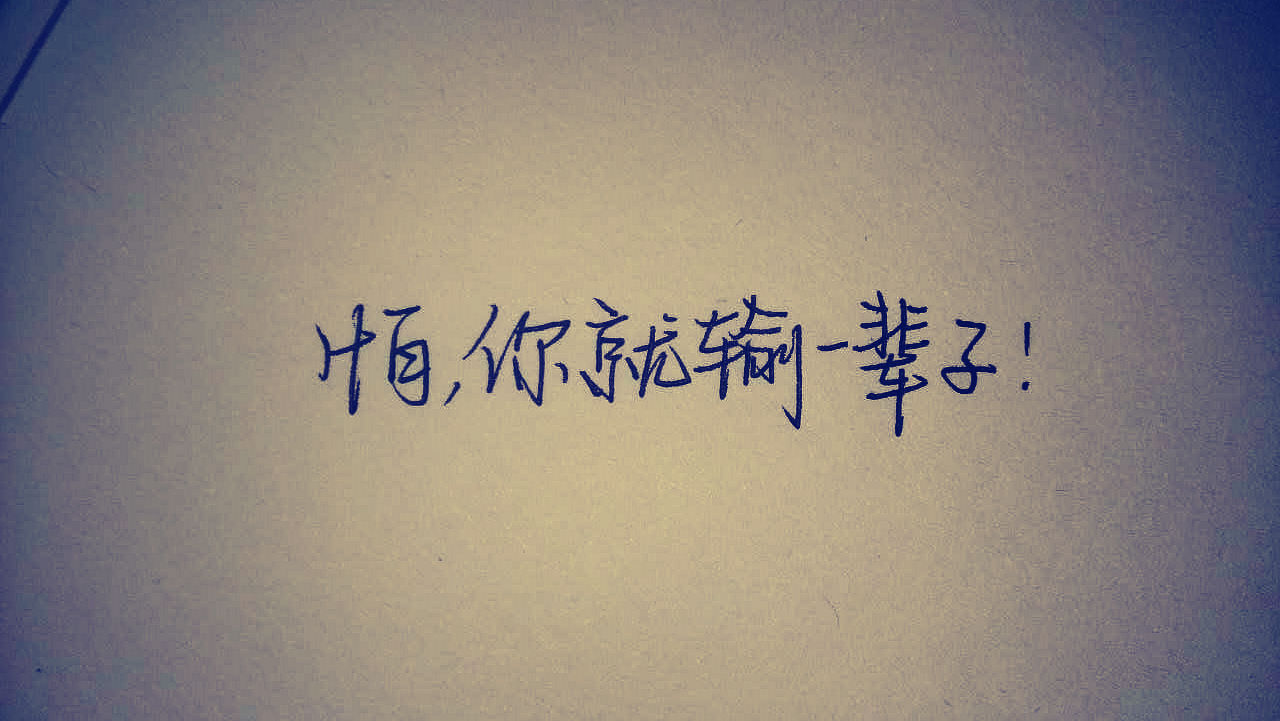 怕,你就输一辈子!